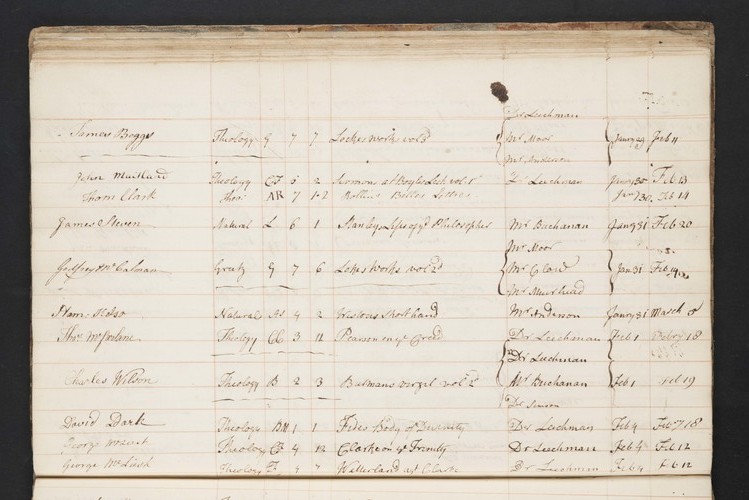 Dr Leechman
James Boggs Theology G 7 7 Lockes works vol 3d Mr Moor Janry 29 Feb 11
Mr Anderson
John Theology CI 5 2 Sermons at Boyles Lect. vol. 1st Dr Leechman Janry 30 Feb 13
Thom Clark Theo: AR 7 12 Rollins Belles Lettres Janr 30 Feb 14
James Steven Natural L 6 1 Stanleys Philosopher Mr Buchanan Janry 31 Feb 20
Mr Moor
Godfrey McCalman Greek G 7 6 Lokes works vol 2d Mr Clow Jan 31 Feb 14
Mr Muirhead
Natural As 4 2 Shorthand Mr Anderson Janry 31 March 8
Thos McFarlane Theology CC 3 12 Pearson on ye Creed Dr Leechman Feb 1 18
Dr Leechman
Charles Wilson Theology B 2 3 Burmans virgil vol 2d Mr Buchanan Feb 1 Feb 19
Dr
David Dark Theology BM 1 1 Body of Divinity Dr Leechman Feb 4 Feb 18
George Theology 4 12 Clarke on ye Trinity Dr Leechman Feb 4 Feb 12
George McLeish Theology 4 7 Waterland agt Clark Dr Leechman Feb 4 Feb 12